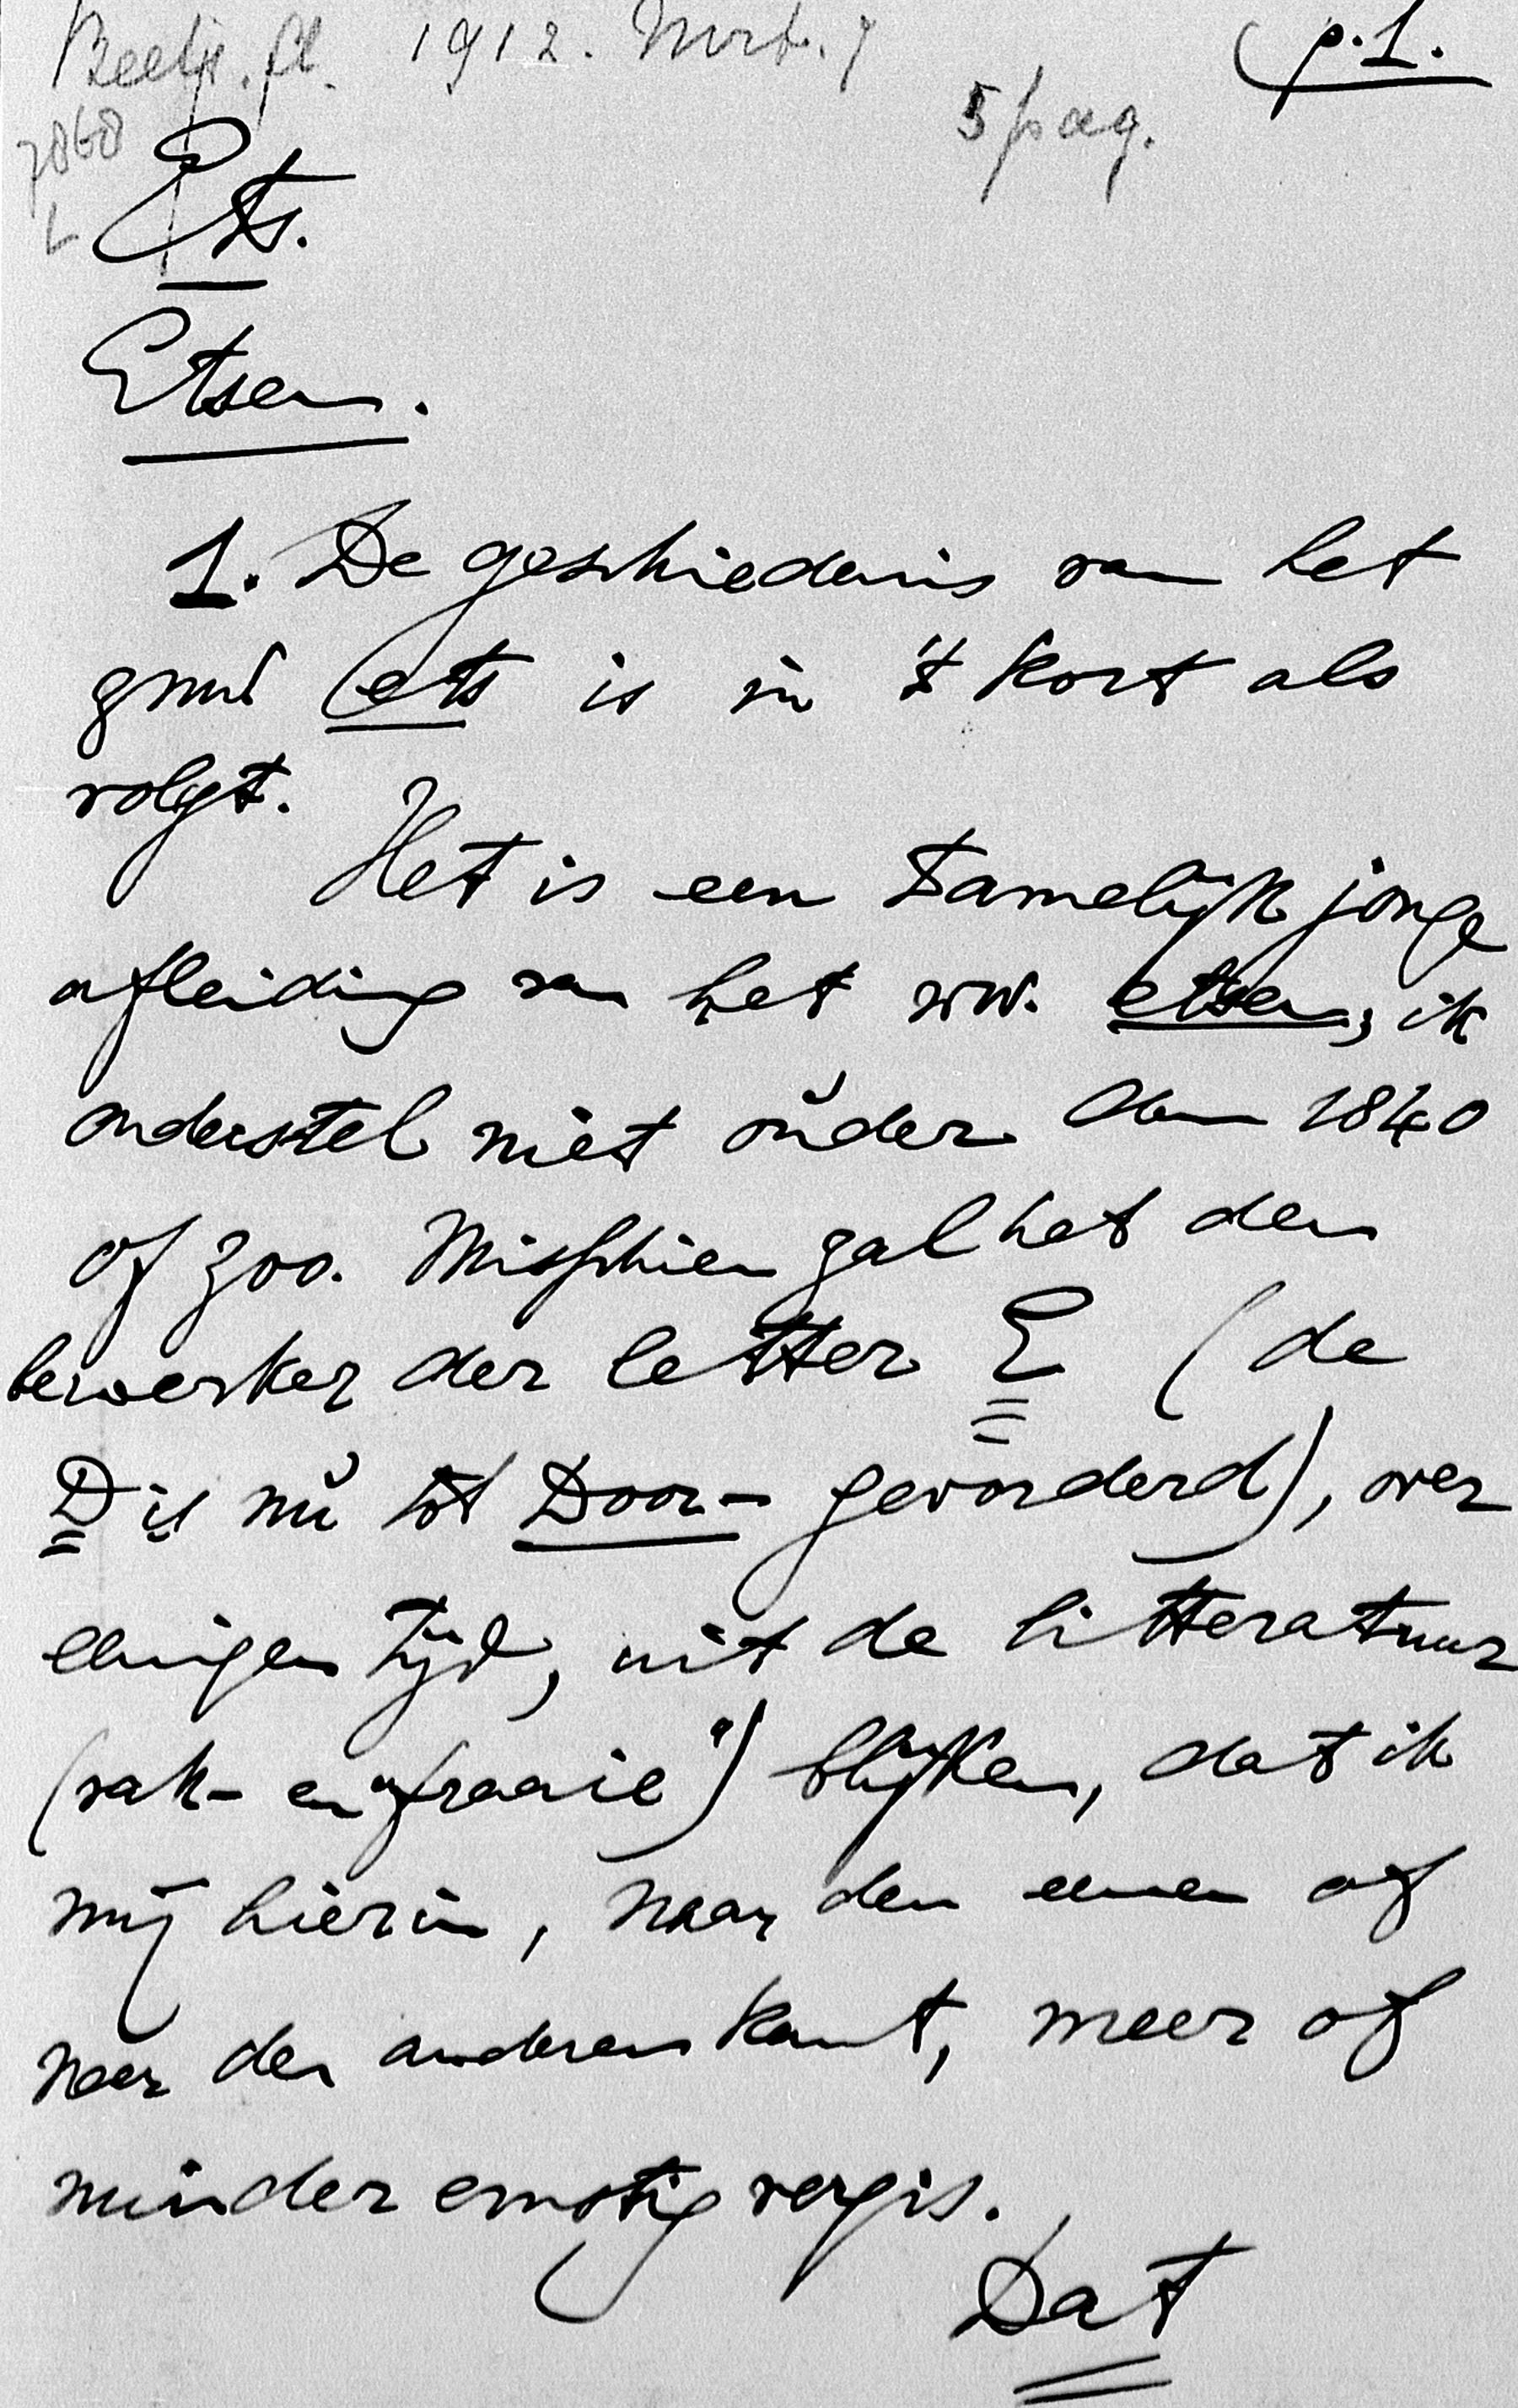 1912.
p.1.
5 pag.
7868
L
Ets.
Etsen.
1. De geschiedenis van het
znwd ets is in 't kort als
volgt.
Het is een tamelijk jonge
afleiding van het ww. etsen, ik
onderstel niet ouder dan 1840
of zoo. Misschien zal het den
bewerker der letter E (de
D is nu tot Door- gevorderd), over
eenigen tijd, uit de litteratuur
(vak- en "fraaie") blijken, dat ik
mij hierin, naar den eenen of
naar den anderen kant, meer of
minder ernstig vergis.
Dat